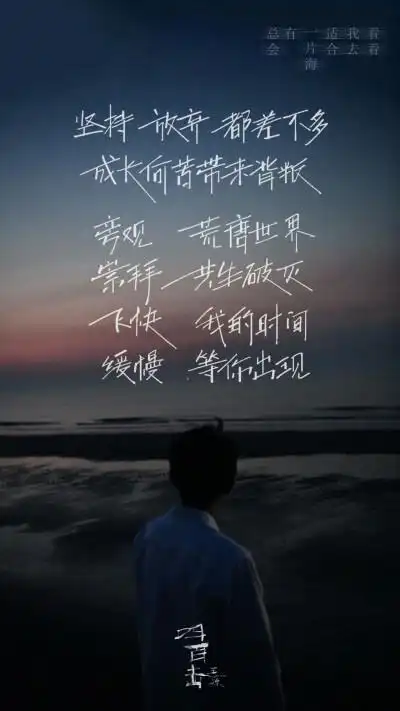 总会有一片海适合我去看看
坚持 放弃 都差不多
成长何苦带来背叛
旁观 荒唐世界
崇拜 共生破灭
飞快 我的时间
缓慢 等你出现
四百击
王源